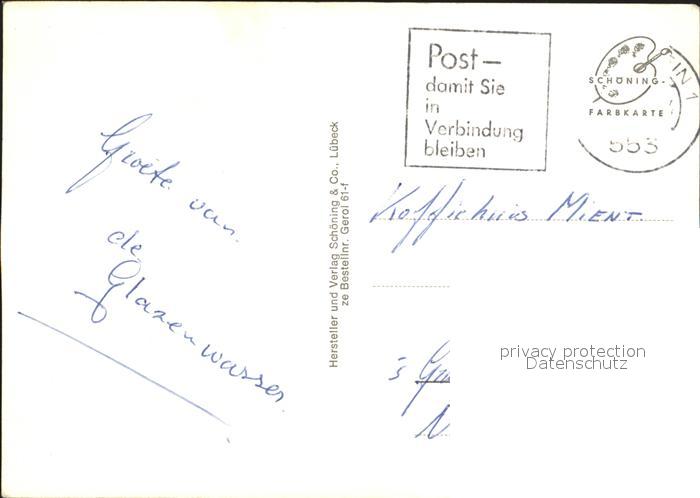 Post –
damit Sie
in
Verbindung
bleiben
SCHÖNING-
FARBKARTE
IN 1
553
Groete van
de
Glazenwasser
Hersteller und Verlag Schöning & Co., Lübeck
ze Bestellnr. Gerol 61-f
Koffiehuis MIENT
privacy protection
Datenschutz
's
N